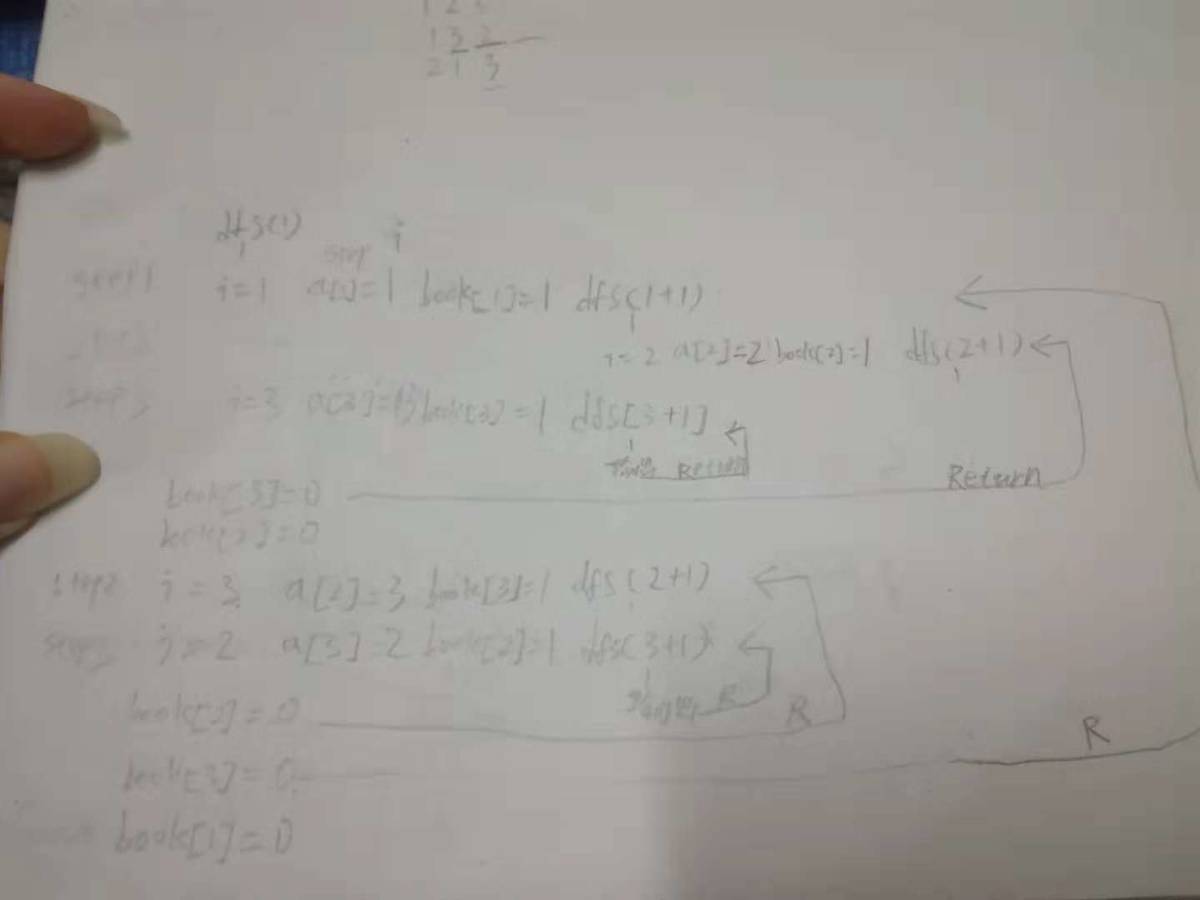 1 2
1 3 2
2 1 3
dfs(1)
step i
step1 i=1 a[1]=1 book[1]=1 dfs(1+1)
i=2 a[2]=2 book[2]=1 dfs(2+1)
step3 i=3 a[3]=3 book[3]=1 dfs[3+1]
Return
Return
book[3]=0
book[2]=0
step2 i=3 a[2]=3 book[3]=1 dfs(2+1)
step3 i=2 a[3]=2 book[2]=1 dfs(3+1)
R
book[2]=0 R
R
book[3]=0
book[1]=0